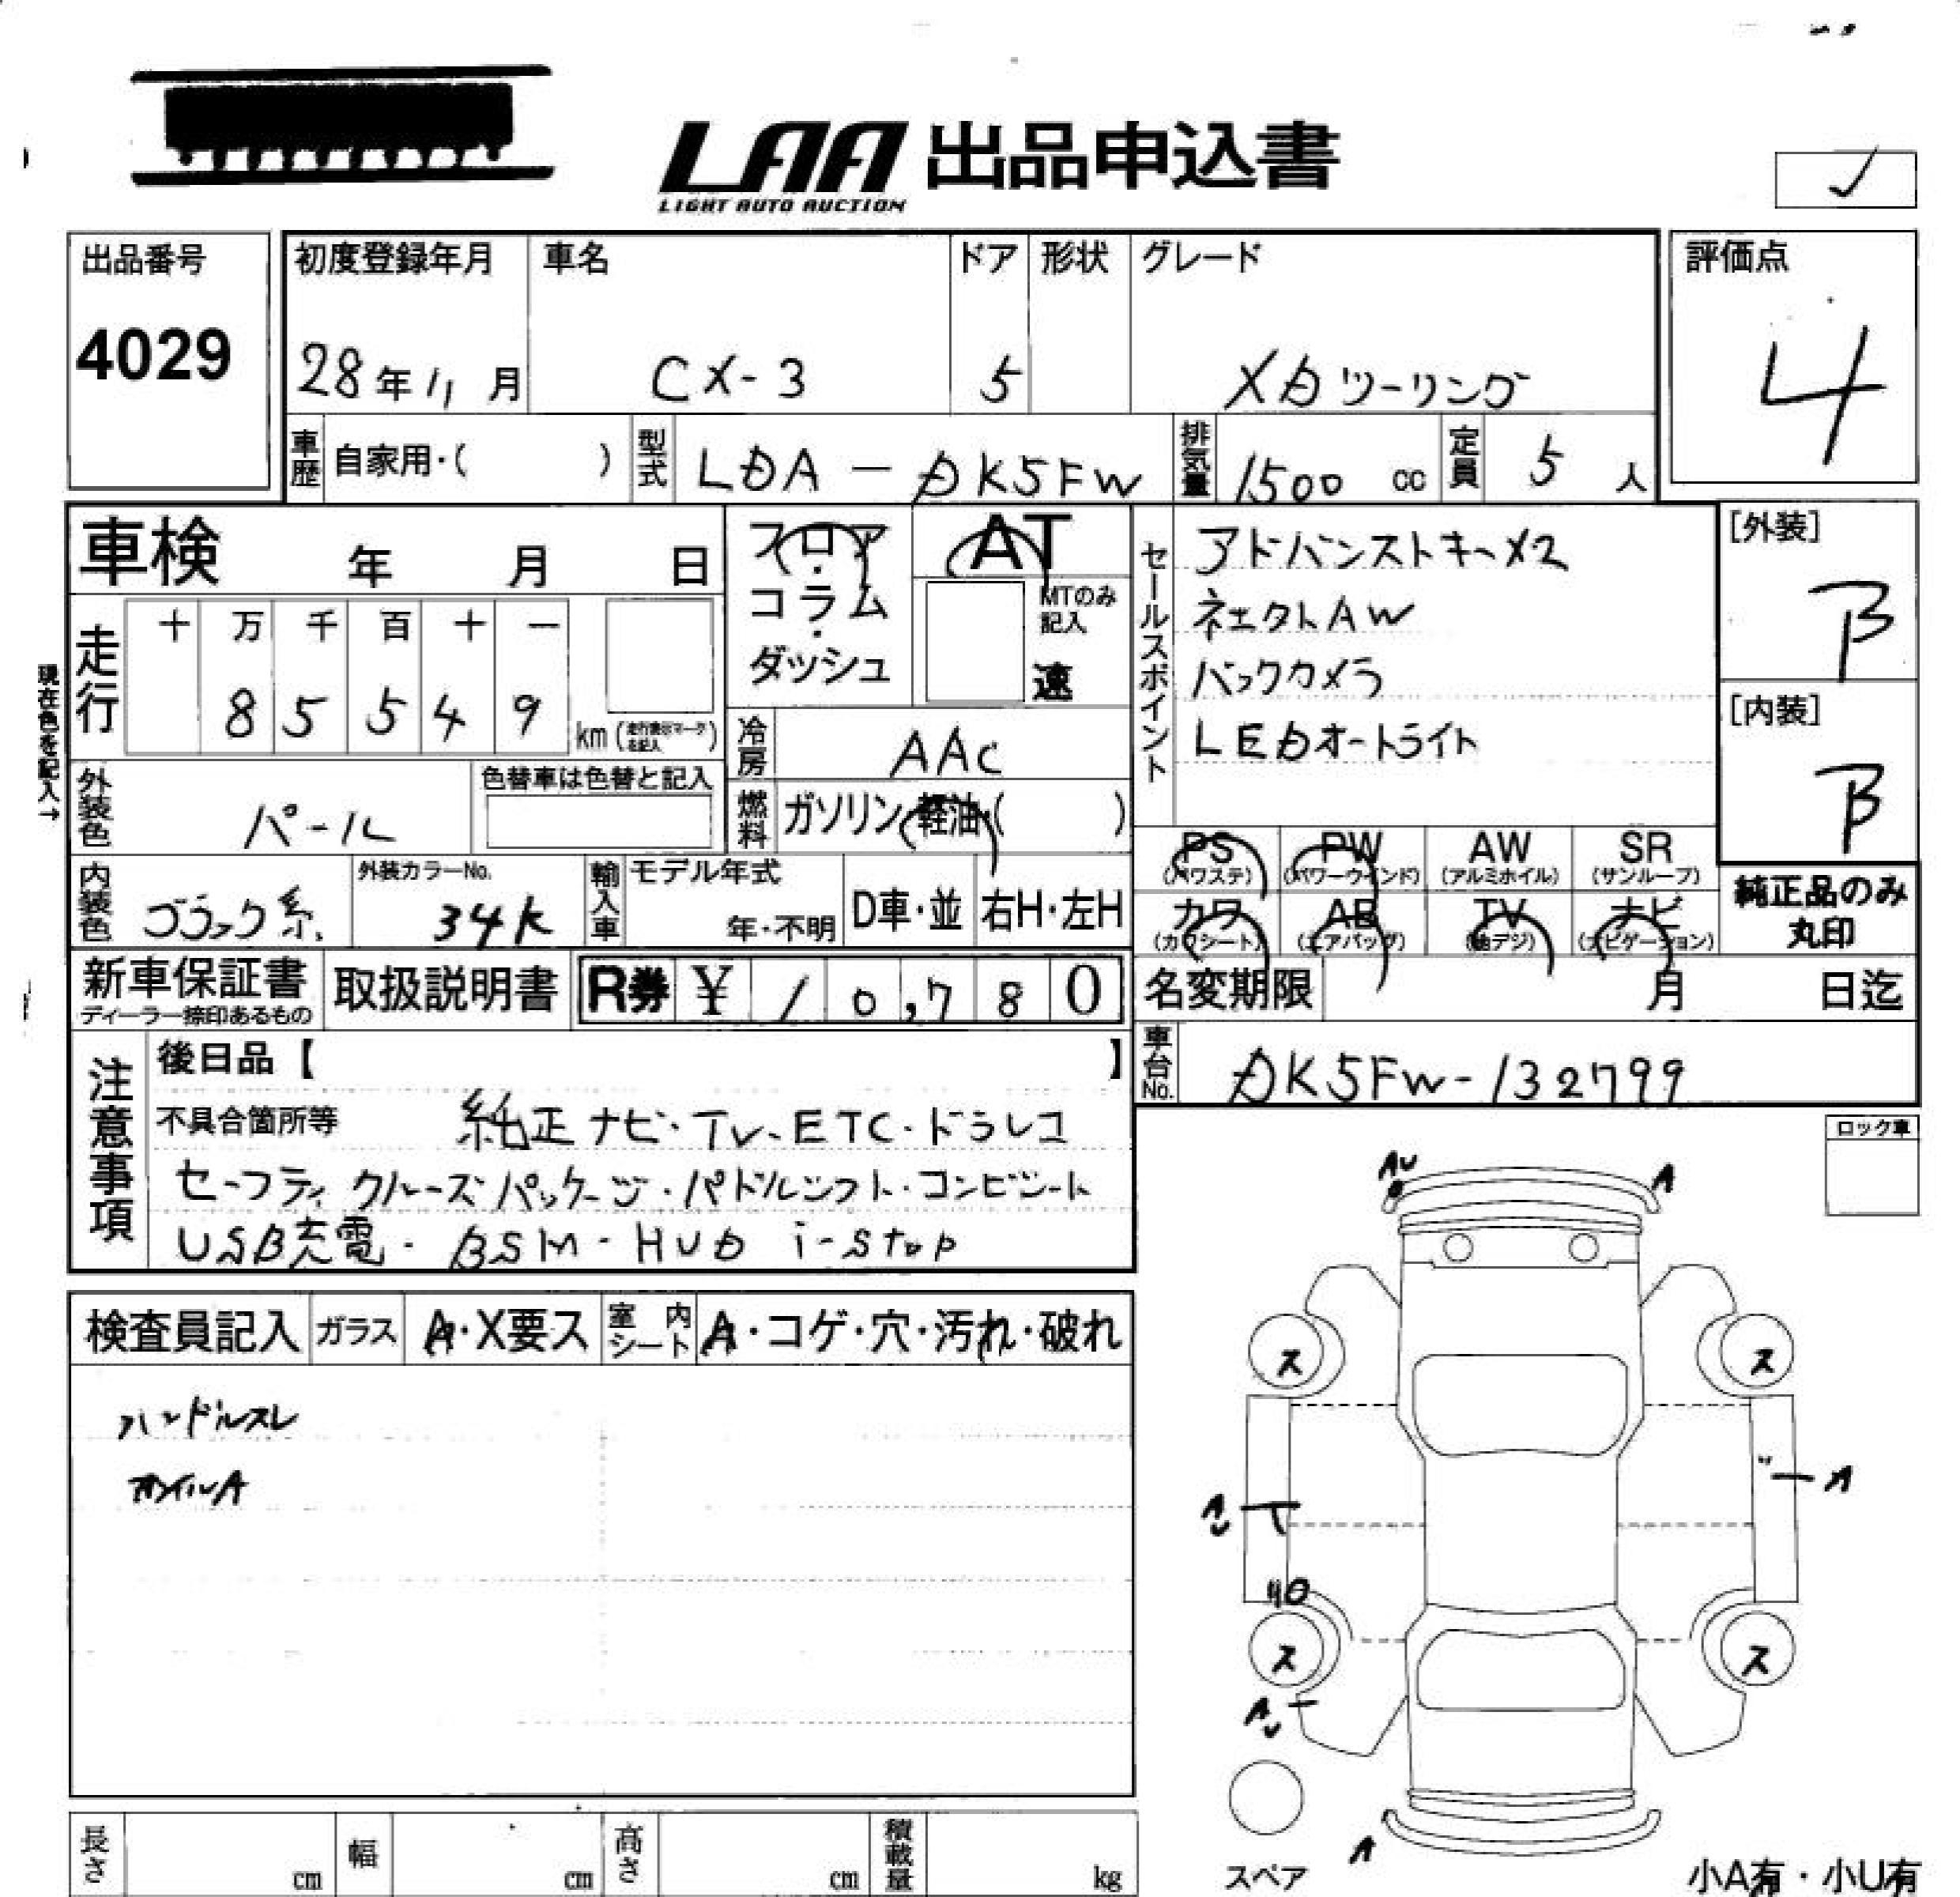 LAA 出品申込書
LIGHT AUTO AUCTION
出品番号
4029
初度登録年月
28年11月
車名
CX-3
ドア
5
形状
グレード
XDツーリング
評価点
4
車歴 自家用・( )
型式 LDA-DK5FW
排気量 1500 cc
定員 5 人
車検 年 月 日
スロア・コラム・ダッシュ
AT
MTのみ記入
速
セールスポイント
アドバンストキーX2
バックカメラ
LEDオートライト
[外装]
B
[内装]
B
現在色を記入→
走行
十 万 千 百 十 一
8 5 5 4 9 km
冷房 AAC
外装色 パール
色替車は色替と記入
燃料 ガソリン・軽油・( )
PS (パワステ) PW (パワーウインド) AW (アルミホイル) SR (サンルーフ)
カワ (カワシート) AB (エアバッグ) TV (地デジ) ナビ (ナビゲーション)
純正品のみ丸印
内装色 ブラック系
外装カラーNo. 34K
輸入車 モデル年式 年・不明
D車・並 右H・左H
新車保証書
ディーラー捺印あるもの
取扱説明書
R券 ¥ 10,780
名変期限 月 日迄
車台No. DK5FW-132799
注意事項
後日品【 】
不具合箇所等 純正ナビ・TV・ETC・ドラレコ
セーフティクルーズパッケージ・パドルシフト・コンビシート
USB充電・BSM・HUD i-stop
ロック車
検査員記入 ガラス A・X要ス 室内シート A・コゲ・穴・汚れ・破れ
ハンドルスレ
AU A
ス ス
A
ス ス
A
スペア
長さ cm 幅 cm 高さ cm 積載量 kg
小A有・小U有